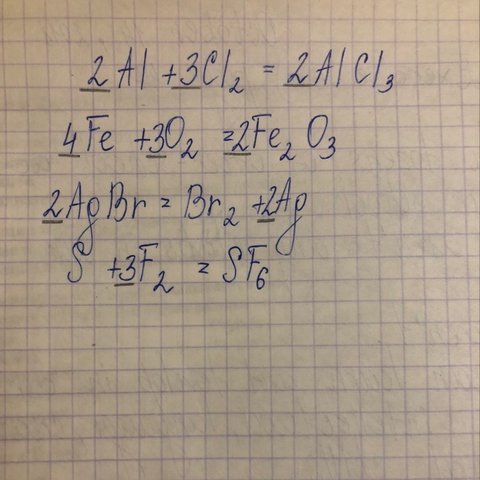 2Al + 3Cl₂ = 2AlCl₃
4Fe + 3O₂ = 2Fe₂O₃
2AgBr = Br₂ + 2Ag
S + 3F₂ = SF₆